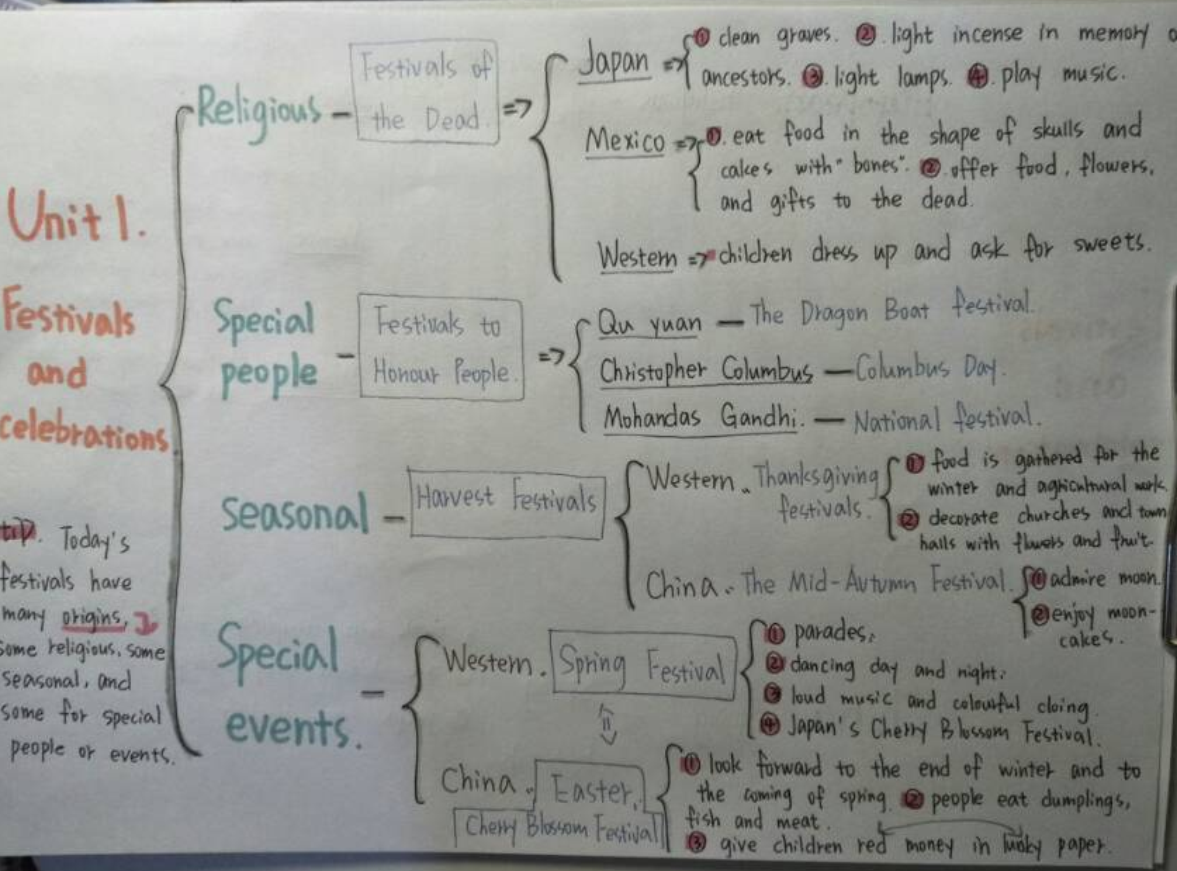 Unit 1.
Festivals
and
celebrations
tip. Today's
festivals have
many origins,
some religious, some
seasonal, and
some for special
people or events.
Religious — Festivals of
the Dead =>
Japan => ① clean graves. ② light incense in memory o
ancestors. ③ light lamps. ④ play music.
Mexico => ① eat food in the shape of skulls and
cakes with "bones". ② offer food, flowers,
and gifts to the dead.
Western => children dress up and ask for sweets.
Special
people — Festivals to
Honour People. =>
Qu yuan — The Dragon Boat festival.
Christopher Columbus — Columbus Day.
Mohandas Gandhi. — National festival.
seasonal — Harvest Festivals
Western. Thanksgiving
festivals.
① food is gathered for the
winter and agricultural work.
② decorate churches and town
halls with flowers and fruit.
China. The Mid-Autumn Festival.
① admire moon.
② enjoy moon-
cakes.
Special
events. —
Western. Spring Festival
① parades.
② dancing day and night.
③ loud music and colourful cloing.
④ Japan's Cherry Blossom Festival.
China. Easter.
Cherry Blossom Festival
① look forward to the end of winter and to
the coming of spring. ② people eat dumplings,
fish and meat.
③ give children red money in lucky paper.